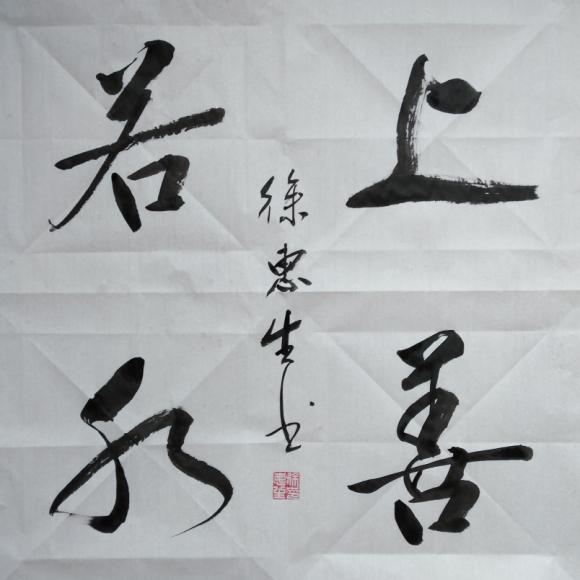 上善
若水
徐惠生书